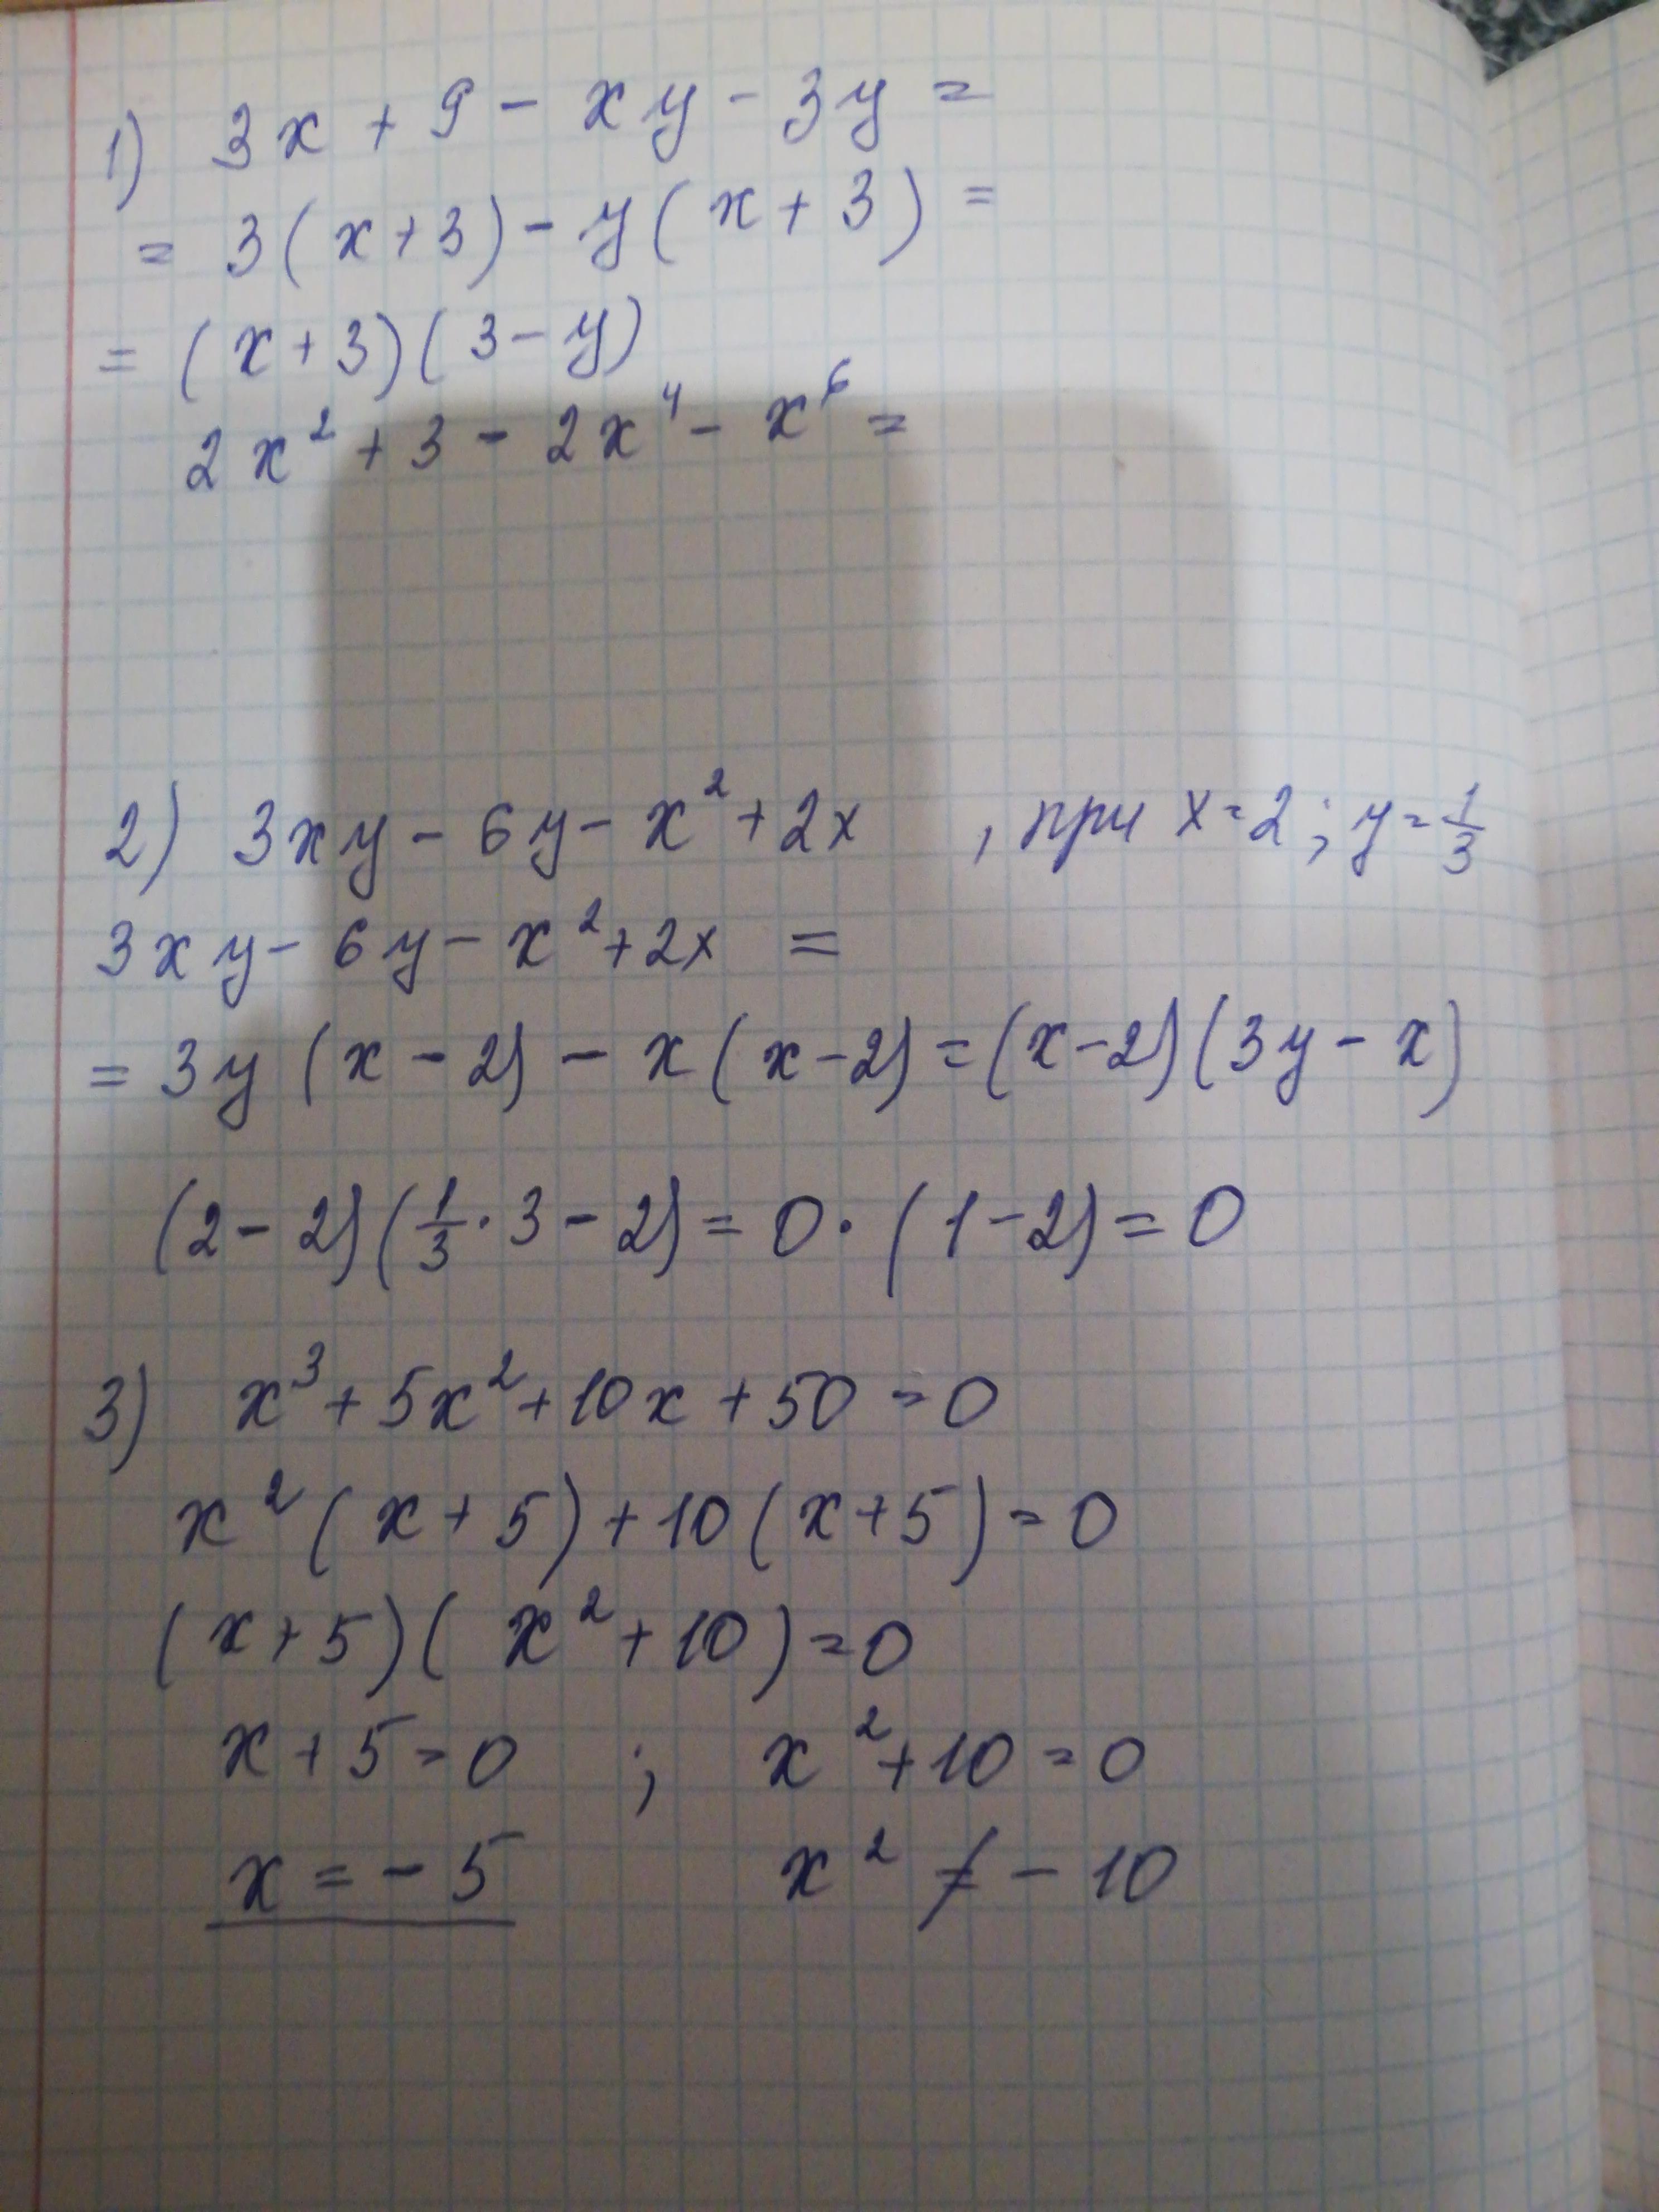 1) 3x + 9 - xy - 3y =
= 3(x+3) - y(x+3) =
= (x+3)(3-y)
2x² + 3 - 2x⁴ - x⁶ =
2) 3xy - 6y - x² + 2x , при x=2; y=1/3
3xy - 6y - x² + 2x =
= 3y(x-2) - x(x-2) = (x-2)(3y-x)
(2-2)(1/3·3-2) = 0·(1-2) = 0
3) x³ + 5x² + 10x + 50 = 0
x²(x+5) + 10(x+5) = 0
(x+5)(x²+10) = 0
x+5=0 ; x²+10=0
x = -5 x² ≠ -10